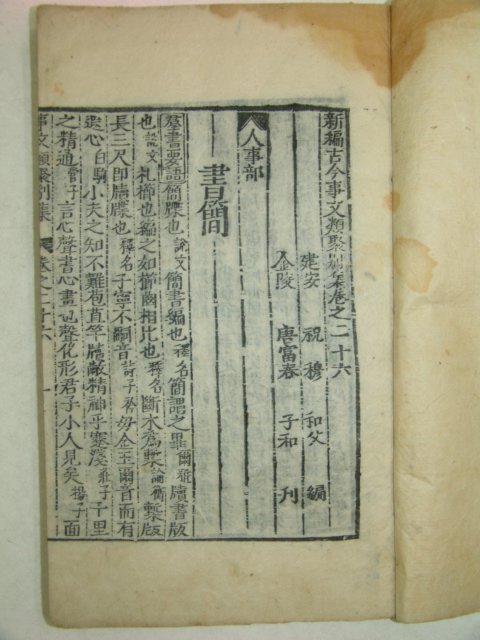 新編古今事文類聚別集卷之二十六
建安 祝穆 和父 編
金陵 唐富春 子和 刊
人事部
書簡
羣書要語簡牒也說文簡書編也釋名簡謂之畢爾雅牘書版
也說文札櫛也編之如櫛齒相比也釋名斷木爲槧論衡槧版
長三尺即牘牒也釋名子寧不嗣音詩子衿毋金玉爾音而有
遐心白駒小夫之知不離苞苴竿牘敝精神乎蹇淺莊子千里
之精通管子言心聲書心畫也聲化形君子小人見矣楊子面
事文類聚別集 卷之二十六 一